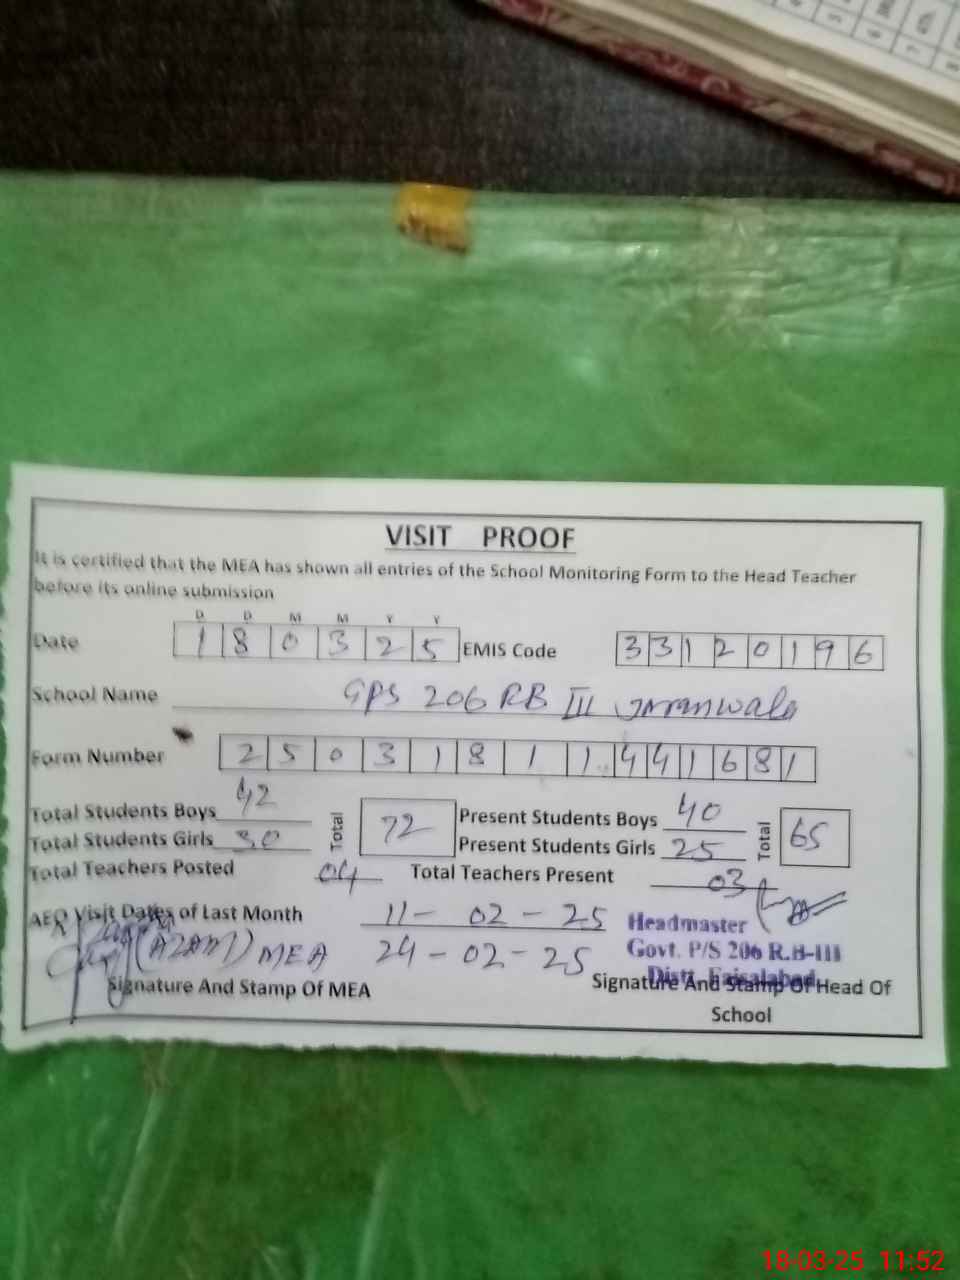 VISIT PROOF
It is certified that the MEA has shown all entries of the School Monitoring Form to the Head Teacher
before its online submission
D D M M Y Y
Date 1 8 0 3 2 5 EMIS Code 3 3 1 2 0 1 9 6
School Name GPS 206 RB III Jaranwala
Form Number 2 5 0 3 1 8 1 1 1 4 4 1 6 8 1
Total Students Boys 42 Total 72 Present Students Boys 40 Total 65
Total Students Girls 30 Present Students Girls 25
Total Teachers Posted 04 Total Teachers Present 03
AEO Visit Dates of Last Month 11-02-25 Headmaster
(AZAM) MEA 24-02-25 Govt. P/S 206 R.B-III
Distt. Faisalabad
Signature And Stamp Of MEA Signature And Stamp Of Head Of
School
18-03-25 11:52